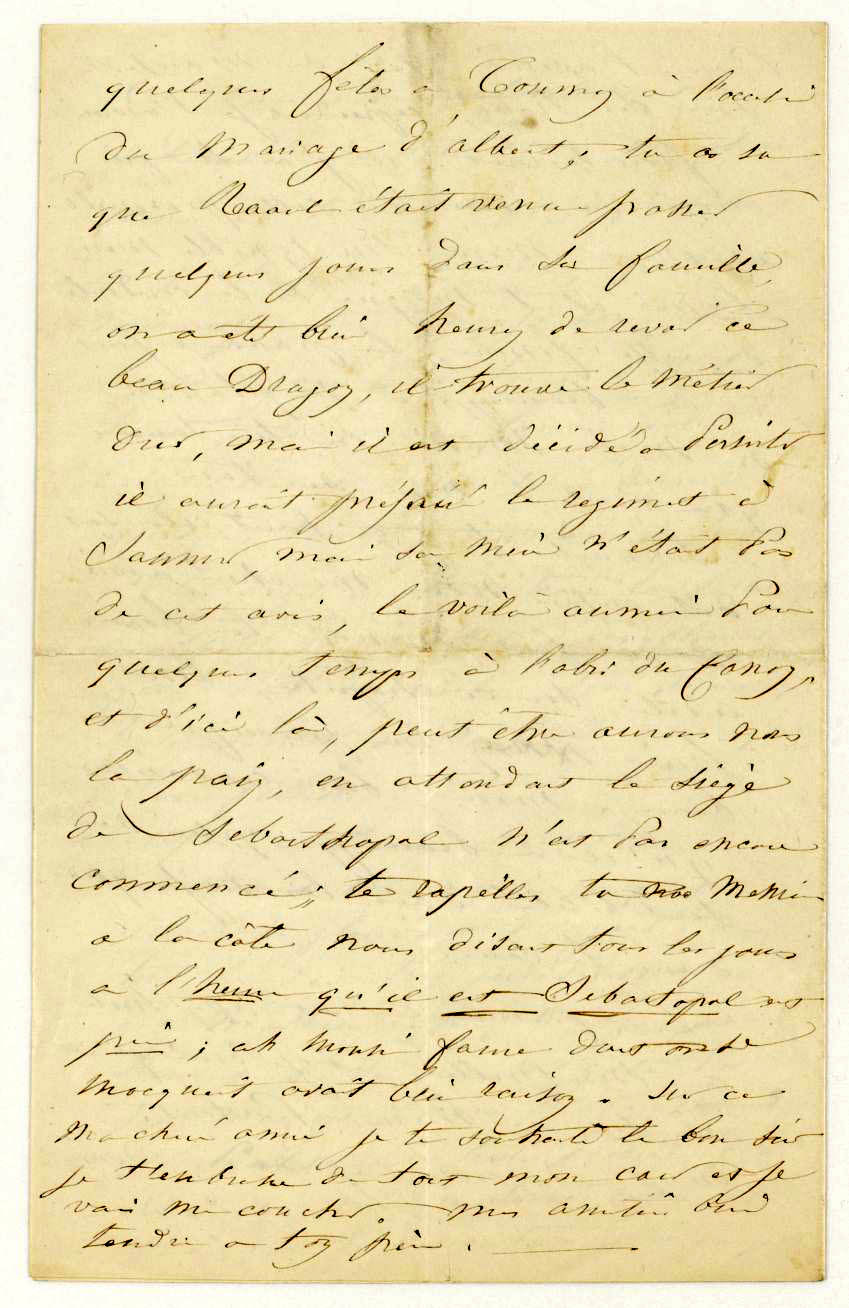 quelques fêtes a Tournay à l'occasi
du Mariage d'albert; tu as su
que Raoul était venu passer
quelques jours dans sa famille,
on a été bien heureux de revoir ce
beau Dragon, il trouve le métier
dur, mais il est décidé a persister
il aurait préféré le regiment à
Saumur, mais sa mère n'était pas
de cet avis, le voilà au moins pour
quelques temps à l'abri du Canon,
et d'ici là, peut être aurons nous
la paix, en attendant le siège
de Sebasthopol n'est pas encore
commencé; te rapelles tu nos Messieurs
a la côte nous disant tous les jours
a l'heure qu'il est Sebastopol est
pris; ah monsieur dont on se
mocquait avait bien raison. sur ce
ma chère amie je te souhaite le bon soir
je t'embrasse de tout mon cœur et je
vais me coucher. mes amitiés bien
tendre a ton père.